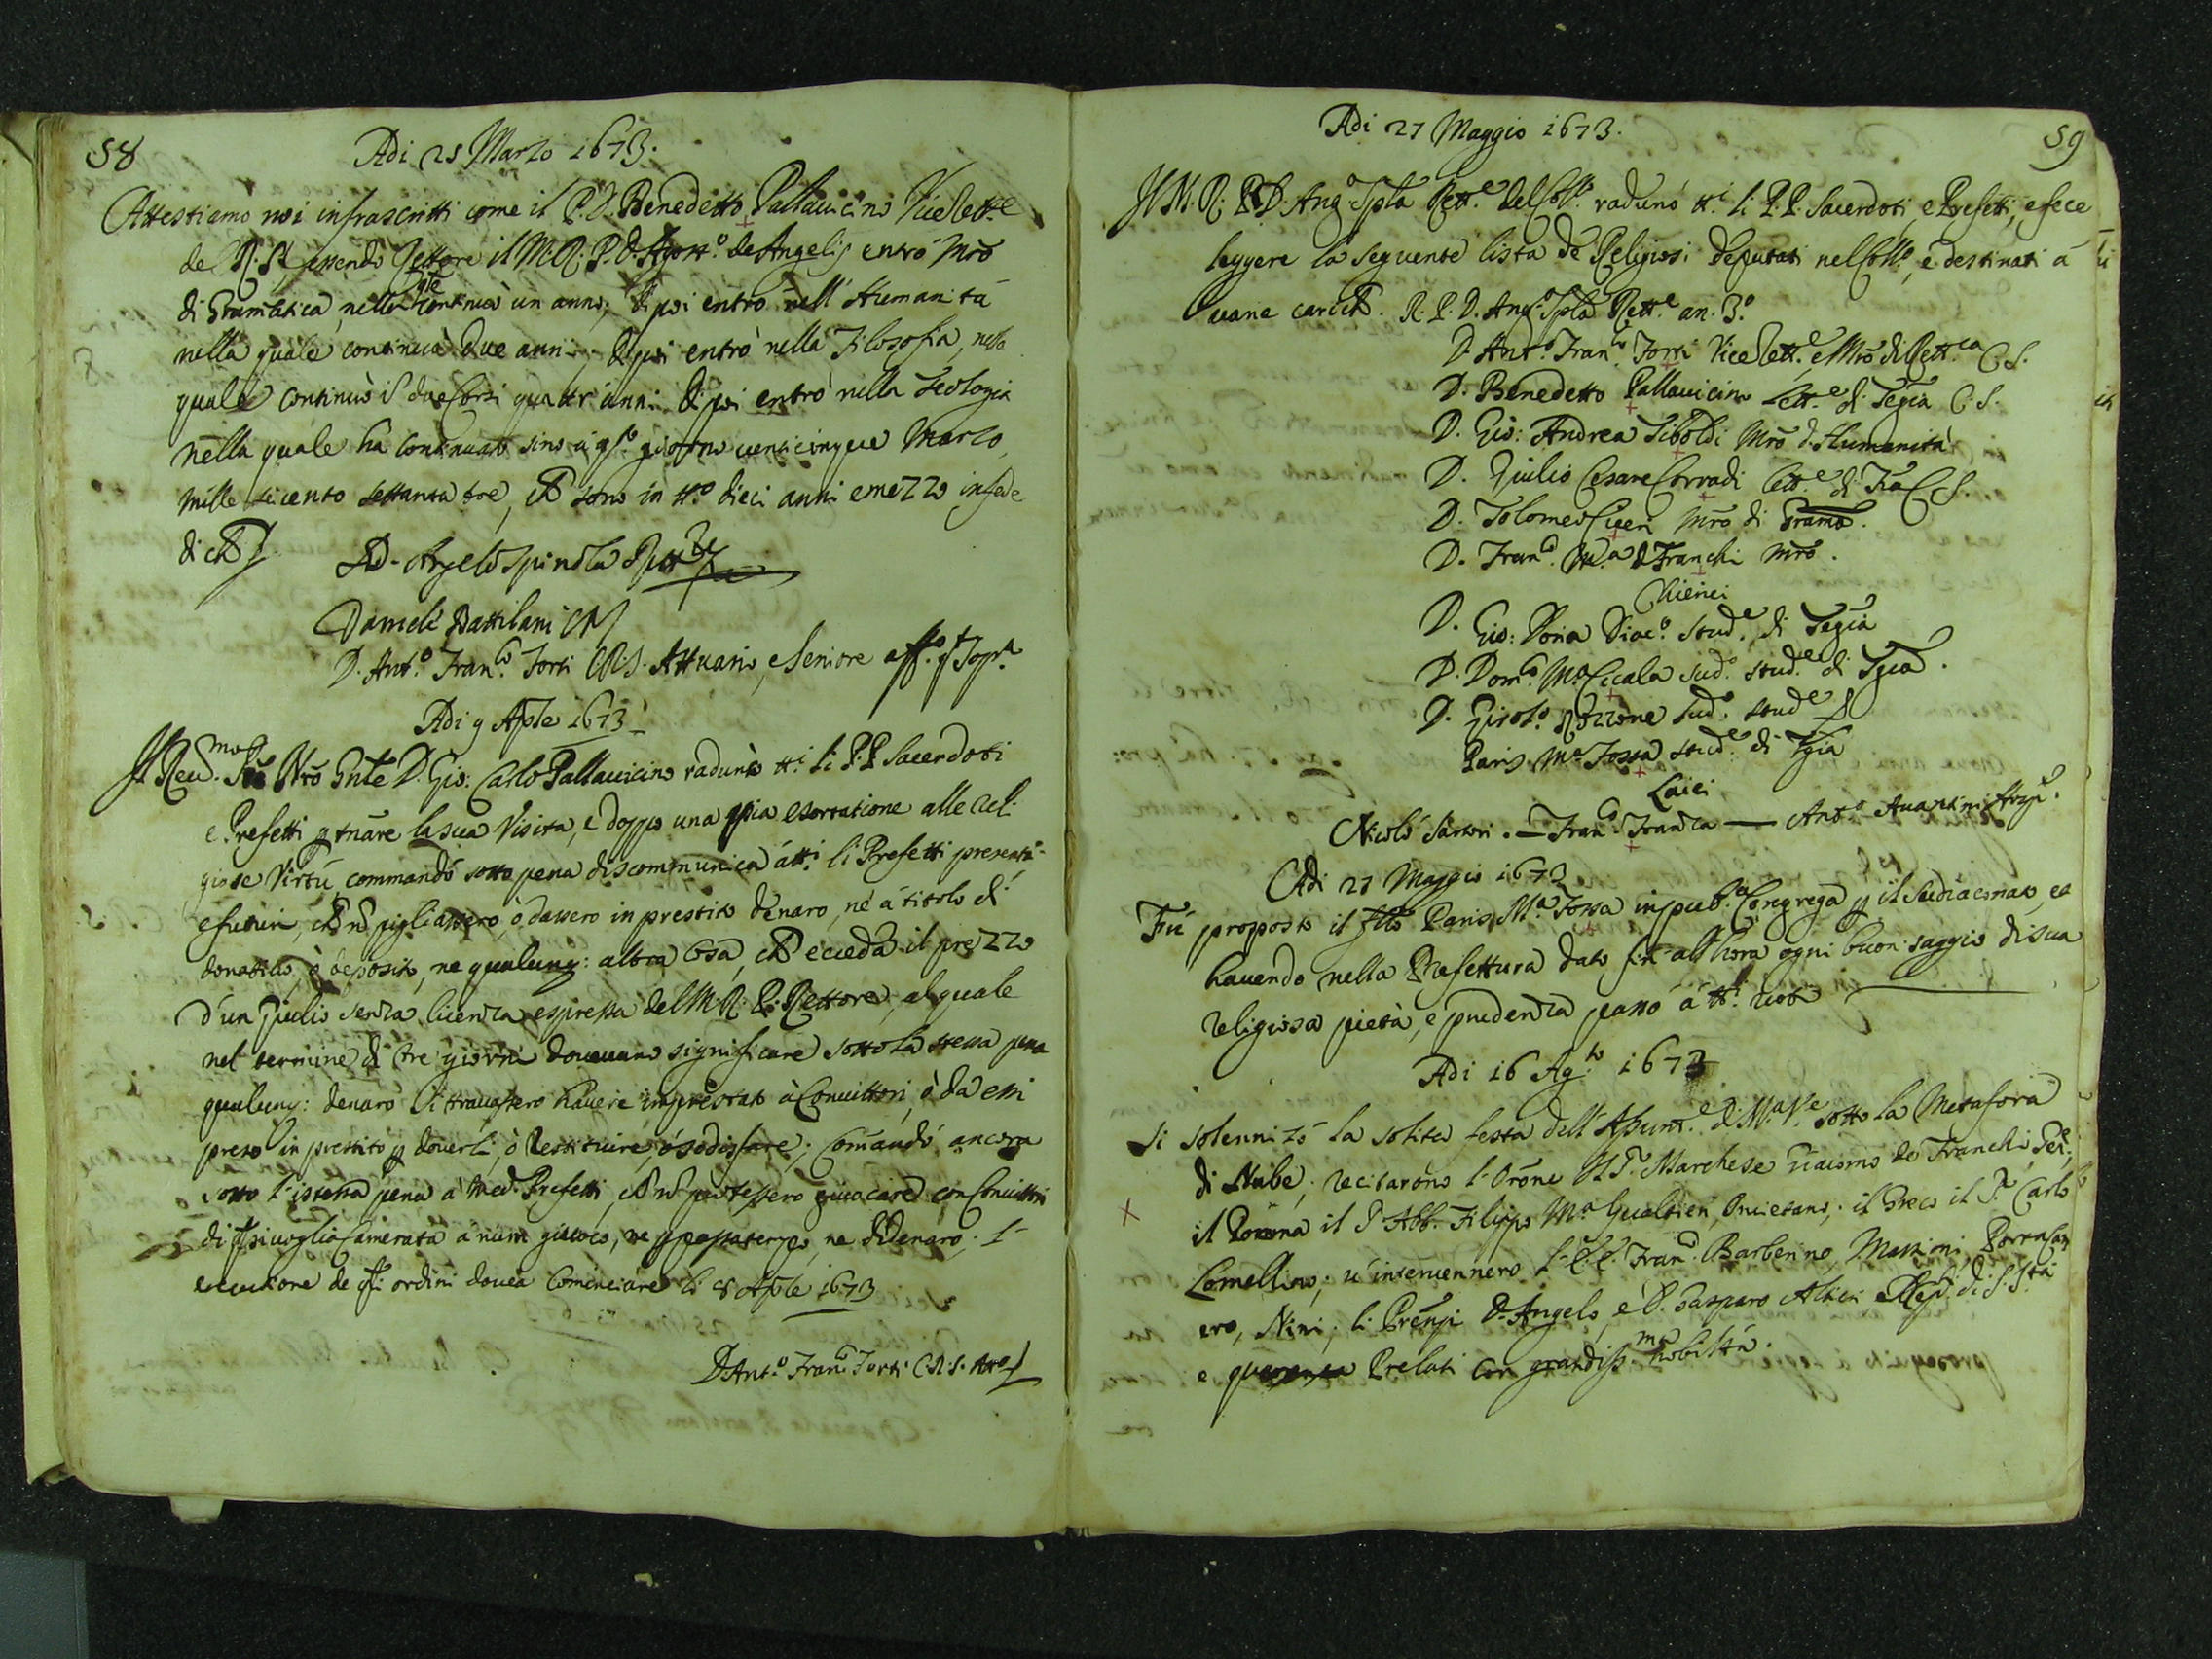 58
Adi 25 Marzo 1673.
Attestiamo noi infrascritti come il P. D. Benedetto Pallauicino Vicelett.e
del essendo Rettore il M. R. P. D. Agost.o de Angelis entrò Mro
di Gramatica, nella qle continuò un anno, di poi entrò nell' Humanità
nella quale continuò due anni, di poi entrò nella Filosofia, nella
quale continuò due Corsi quattr' anni di poi entrò nella Teologia
nella quale ha continuato sino à qsto giorno venticinque Marzo,
mille seicento settanta tre, che sono in tt.o dieci anni e mezzo in fede
di che
D. Angelo Spinola Rett.re
Daniele Battilani
D. Ant.o Fran.co Torti C.R.S. Attuario, e Seniore aff.o qto sop.a
Adi 9 Aple 1673
Il Reu.mo Pre Nro Gnle D. Gio: Carlo Pallauicino radunò tt.i li P.P. Sacerdoti
e Prefetti p tnare la sua Visita, e doppo una pia esortatione alle reli-
giose Virtù commandò sotto pena di scommunica à tt.i li Prefetti presenti
e futuri, che nō pigliassero, ò dassero in prestito denaro, né à titolo di
donatiuo, ò deposito, ne qualunq: altra cosa, che ecceda il prezzo
d'un Giulio senza licenza espressa del M. R. P. Rettore, al quale
nel termine di tre giorni doueuano significare sotto la stessa pena
qualunq: denaro si trouassero hauere imprestato à Conuittori, ò da essi
preso in prestito p douerli, ò restituire, ò sodisfare; Comandò ancora
sotto l'istessa pena à med.i Prefetti, che nō potessero giuocare con Conuittori
di qsiuoglia Camerata à niun giuoco, ne p passatempo, ne di denaro. L'
esecutione de qti ordini douea cominciare li 8 Aple 1673
D. Ant.o Fran.co Torti C.R.S. Att.o
59
Adi 27 Maggio 1673.
Il M. R. P. D. Ang.o Spla Rett.e del Coll.o radunò tt.i li P.P. Sacerdoti, e Prefetti, e fece
leggere la seguente lista de Religiosi deputati nel Coll.o, e destinati à
uarie cariche. R. P. D. Ang.o Spla Rett.e an. 3.o
D. Ant.o Fran.co Torti Vicelett.e, e Mro di Rett.ca C.S.
D. Benedetto Pallauicino Lett.e di Tegia C.S.
D. Gio: Andrea Tiboldi Mro d'Humanità
D. Giulio Cesare Corradi Lett.e di Fia C.S.
D. Tolomeo Mro di Grama.
D. Fran.co M.a de Franchi Mro.
Chierici
D. Gio: Doria Diac.o Stud.e di Tegia
D. Dom.co M.a Cicala Sud.o stud.e di Tgia.
D. Girol.o Sud.o stud.e
Paris M.a Fossa stud.e di Tgia
Laici
Nicolò Sartori. — Fran.co Franza — Ant.o
Adi 27 Maggio 1673
Fù proposto il Fllo Paris M.a Fossa in pub.ca Congrega p il Sudiaconato, et
hauendo nella Prefettura dato fin' all'hora ogni buon saggio di sua
religiosa pietà, e prudenza passò à tt.i uoti
Adi 16 Ag.to 1673
Si solennizò la solita festa dell' Assunt.e di M.a V.e sotto la Metafora
di Nube; recitarono l'Orōne il S.r Marchese Giacomo de Franchi
il Poema il S.r Abb.e Filippo M.a Gualtieri, Oruietano; il Greco il S.r Carlo
Lomellino; u' interuennero l' Fran.co Barberino, Massimi, Portocarr
ero, Nini; li Prenpi D. Angelo, e D. Gasparo Altieri Nep. di S. Stà
e quaranta Prelati con grandiss.ma nobiltà.